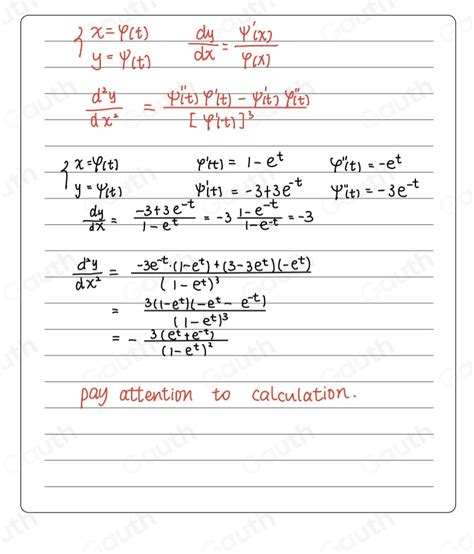 { x = φ(t)   dy/dx = ψ'(x)/φ(x)
y = ψ(t)
d²y/dx² = ψ''(t) φ'(t) - ψ'(t) φ''(t) / [φ'(t)]³
{ x = φ(t)   φ'(t) = 1 - eᵗ   φ''(t) = -eᵗ
y = ψ(t)   ψ'(t) = -3+3e⁻ᵗ   ψ''(t) = -3e⁻ᵗ
dy/dx = -3+3e⁻ᵗ / 1-eᵗ = -3 1-e⁻ᵗ / 1-e⁻ᵗ = -3
d²y/dx² = -3e⁻ᵗ·(1-eᵗ)+(3-3eᵗ)(-eᵗ) / (1-eᵗ)³
= 3(1-eᵗ)(-eᵗ - e⁻ᵗ) / (1-eᵗ)³
= - 3(eᵗ+e⁻ᵗ) / (1-eᵗ)²
pay attention to calculation.